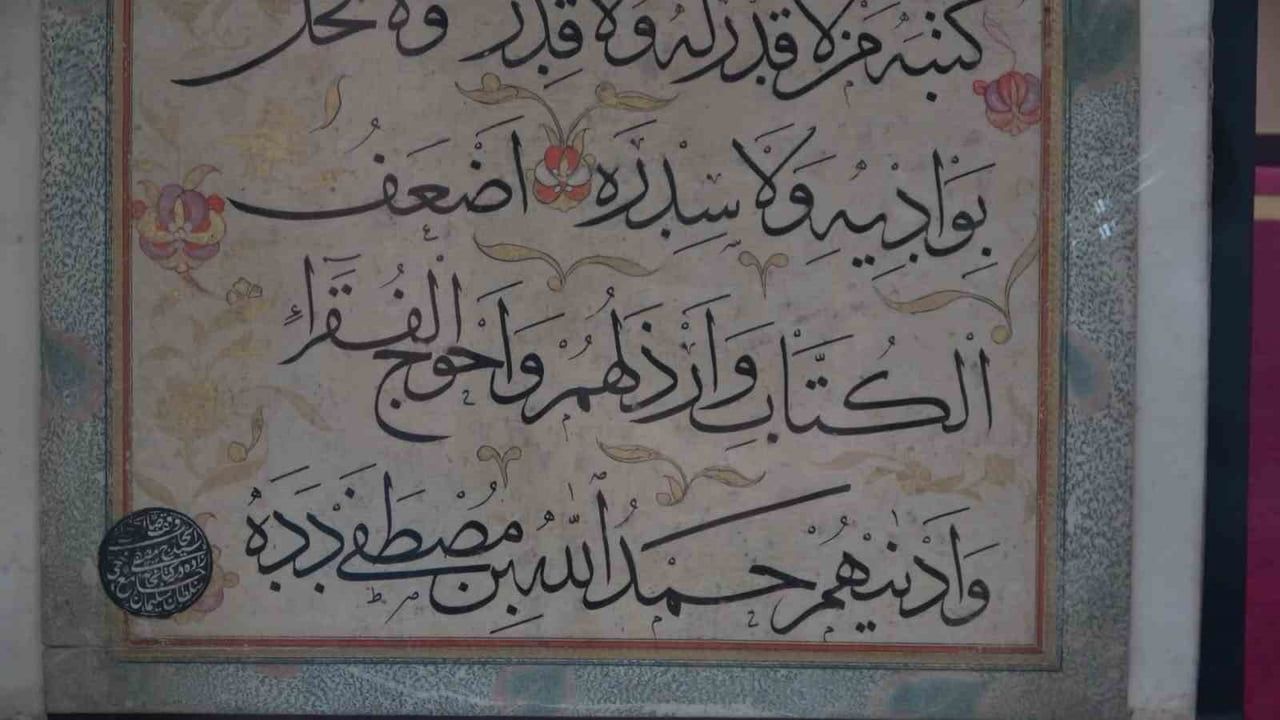 كتبه من لا قدر له ولا قدر ولا نخل
بواديه ولا سدره اضعف
الكتاب وارذلهم واحوج الفقراء
وادنيهم حمد الله بن مصطفى دده